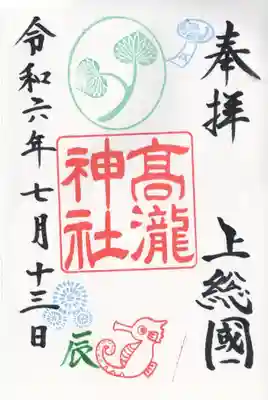 奉拝
上総國
髙瀧
神社
辰
令和六年七月十三日